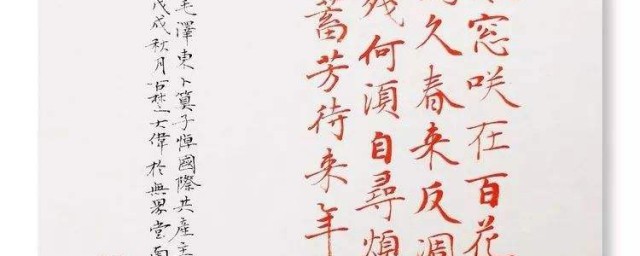 窓咲在百花
久春来反凋
残何湏自尋煩
蓄芳待来年
毛澤東卜算子悼國際共產主
戊戌秋月古楚大偉於無界堂